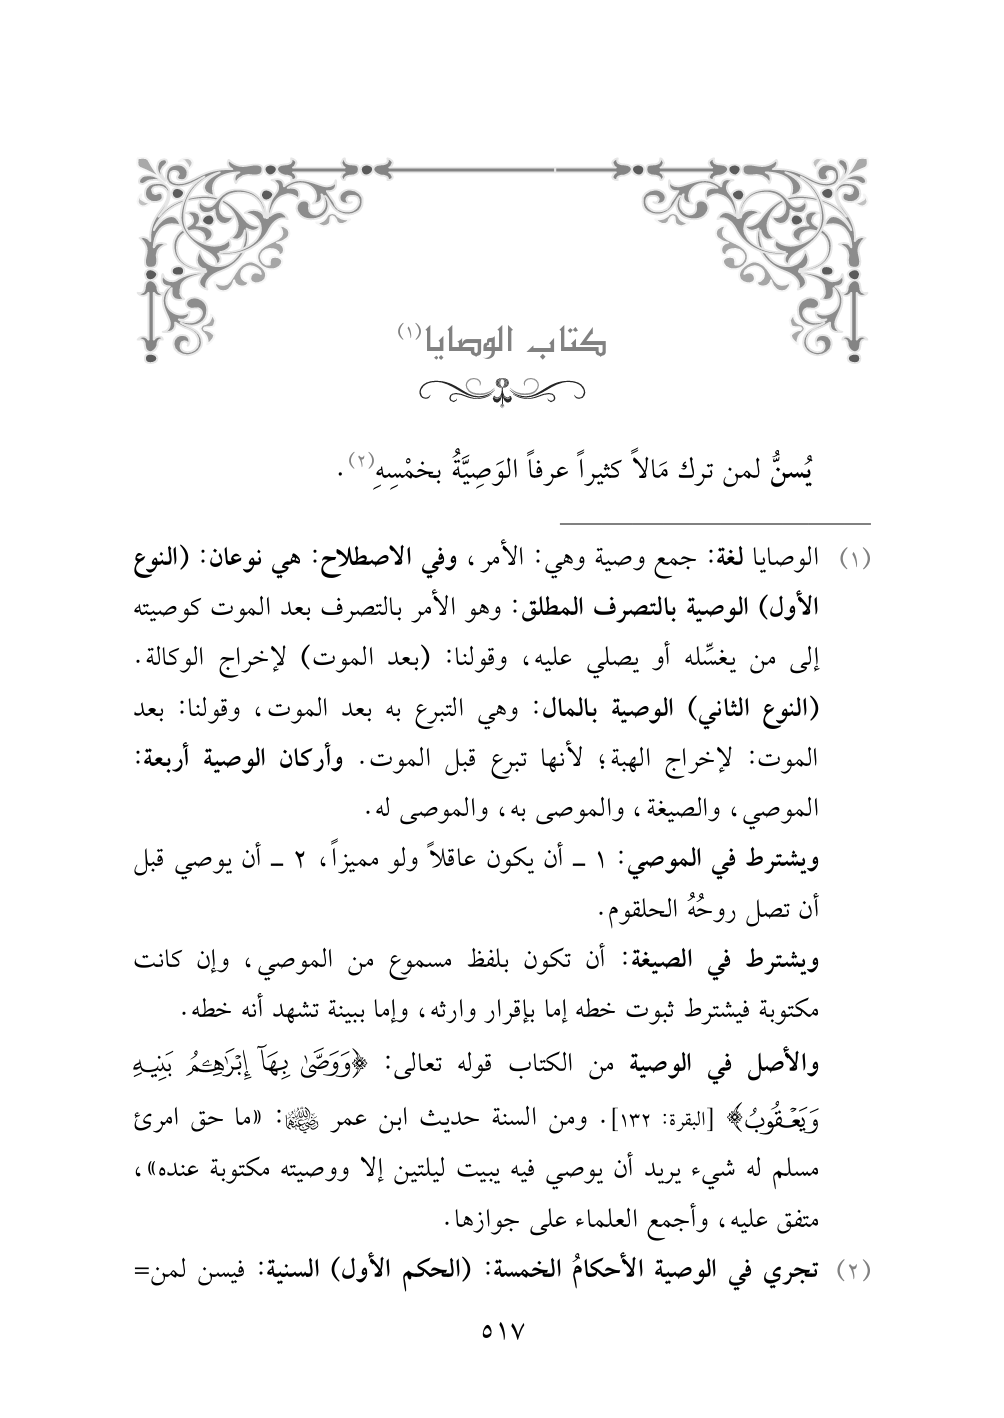 كتاب الوصايا(١)
يُسنُّ لمن ترك مَالاً كثيراً عرفاً الوَصِيَّةُ بخمْسِهِ(٢).
(١) الوصايا لغة: جمع وصية وهي: الأمر، وفي الاصطلاح: هي نوعان: (النوع
الأول) الوصية بالتصرف المطلق: وهو الأمر بالتصرف بعد الموت كوصيته
إلى من يغسِّله أو يصلي عليه، وقولنا: (بعد الموت) لإخراج الوكالة.
(النوع الثاني) الوصية بالمال: وهي التبرع به بعد الموت، وقولنا: بعد
الموت: لإخراج الهبة؛ لأنها تبرع قبل الموت. وأركان الوصية أربعة:
الموصي، والصيغة، والموصى به، والموصى له.
ويشترط في الموصي: ١ ـ أن يكون عاقلاً ولو مميزاً، ٢ ـ أن يوصي قبل
أن تصل روحُهُ الحلقوم.
ويشترط في الصيغة: أن تكون بلفظ مسموع من الموصي، وإن كانت
مكتوبة فيشترط ثبوت خطه إما بإقرار وارثه، وإما ببينة تشهد أنه خطه.
والأصل في الوصية من الكتاب قوله تعالى: ﴿وَوَصَّىٰ بِهَآ إِبْرَٰهِـۧمُ بَنِيهِ
وَيَعْقُوبُ﴾ [البقرة: ١٣٢]. ومن السنة حديث ابن عمر رضي الله عنهما: «ما حق امرئ
مسلم له شيء يريد أن يوصي فيه يبيت ليلتين إلا ووصيته مكتوبة عنده»،
متفق عليه، وأجمع العلماء على جوازها.
(٢) تجري في الوصية الأحكامُ الخمسة: (الحكم الأول) السنية: فيسن لمن=
٥١٧